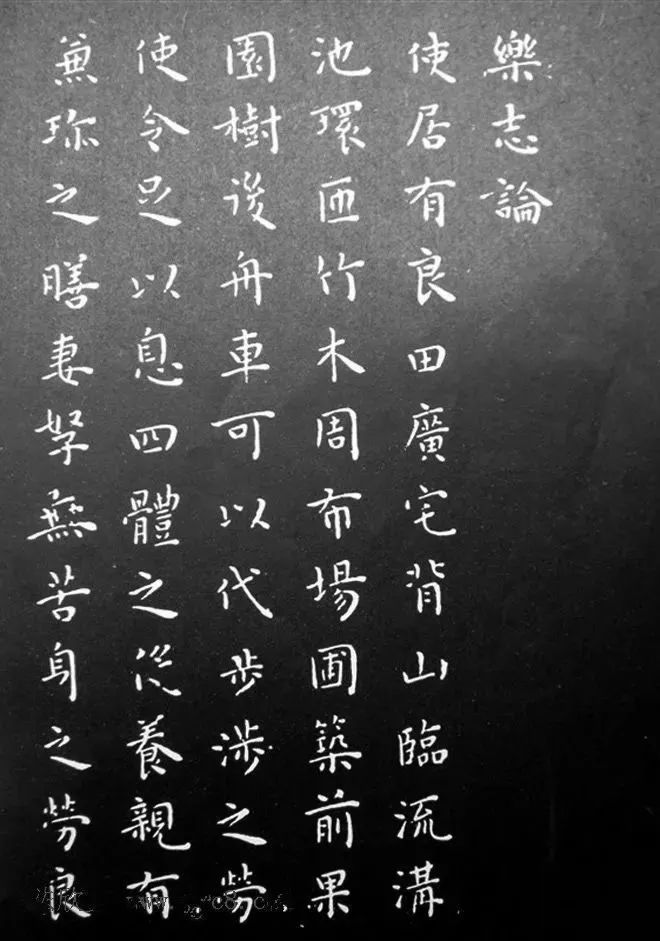 樂志論
使居有良田廣宅背山臨流溝
池環匝竹木周布場圃築前果
園樹後舟車可以代步涉之勞
使令足以息四體之役養親有
兼珍之膳妻孥無苦身之勞良